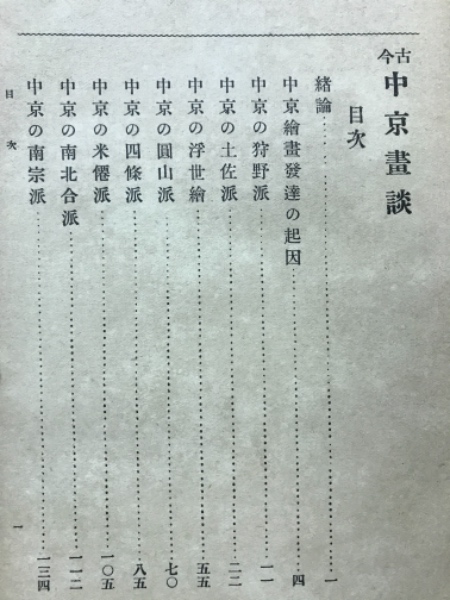 古今
中京畫談
目次
緒論……一
中京繪畫發達の起因……四
中京の狩野派……一一
中京の土佐派……二二
中京の浮世繪……五五
中京の圓山派……七〇
中京の四條派……八五
中京の米僊派……一〇五
中京の南北合派……一一二
中京の南宗派……一三四
目次
一